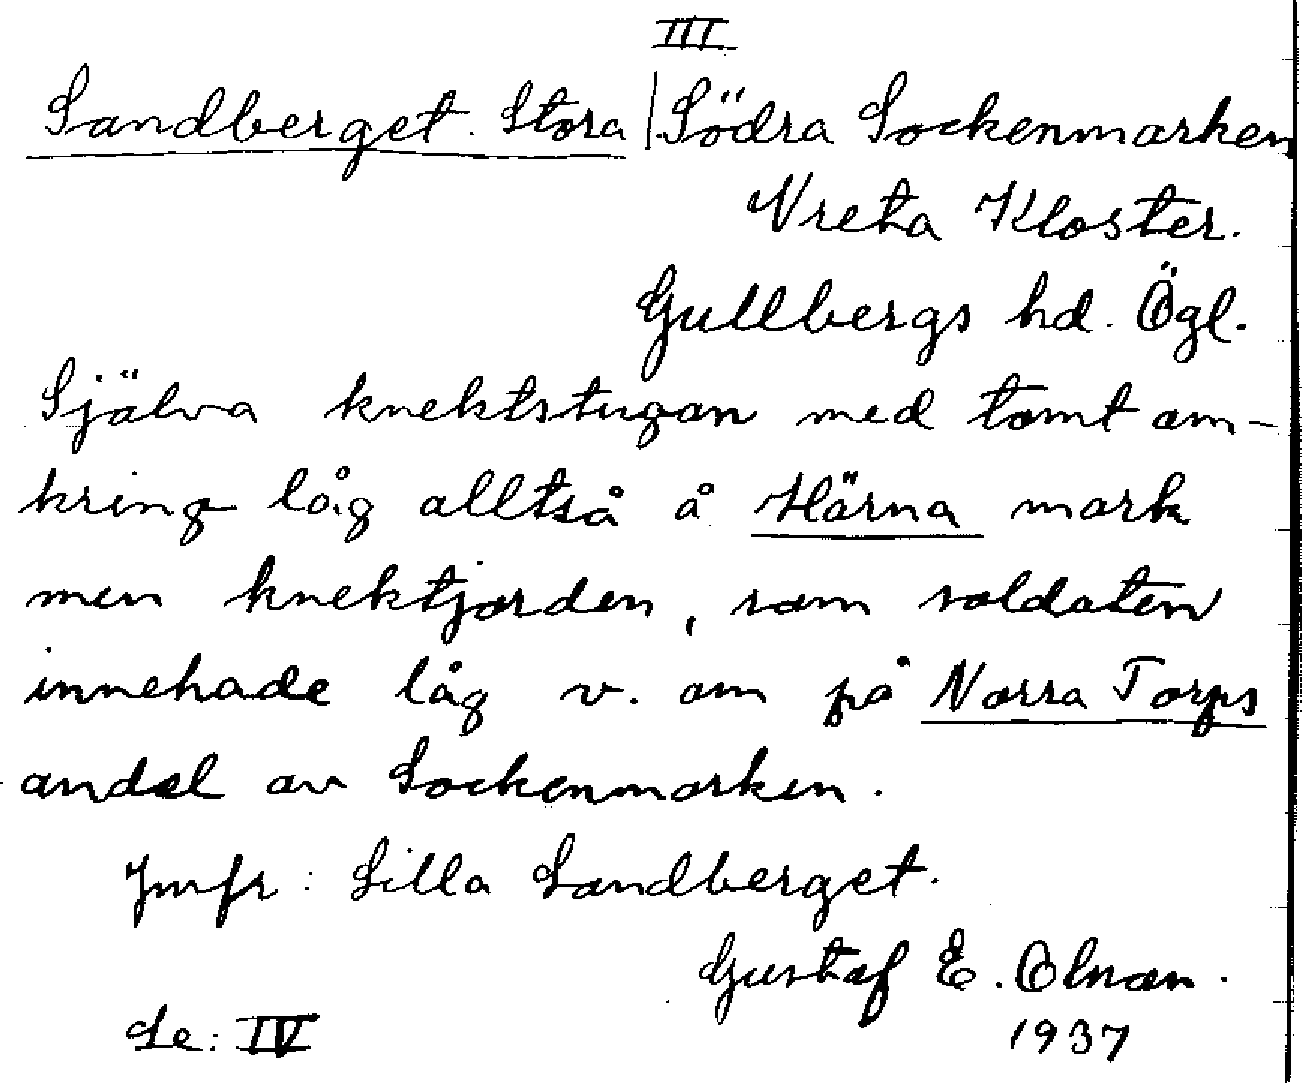 III
Sandberget. Stora | Södra Sockenmarken
Vreta Kloster.
Gullbergs hd. Ögl.
Själva knektstugan med tomt om-
kring låg alltså å Härna mark
men knektjorden, som soldaten
innehade låg v. om på Norra Torps
andel av Sockenmarken.
Jmfr: Lilla Sandberget.
Gustaf E. Olson.
Se: IV
1937